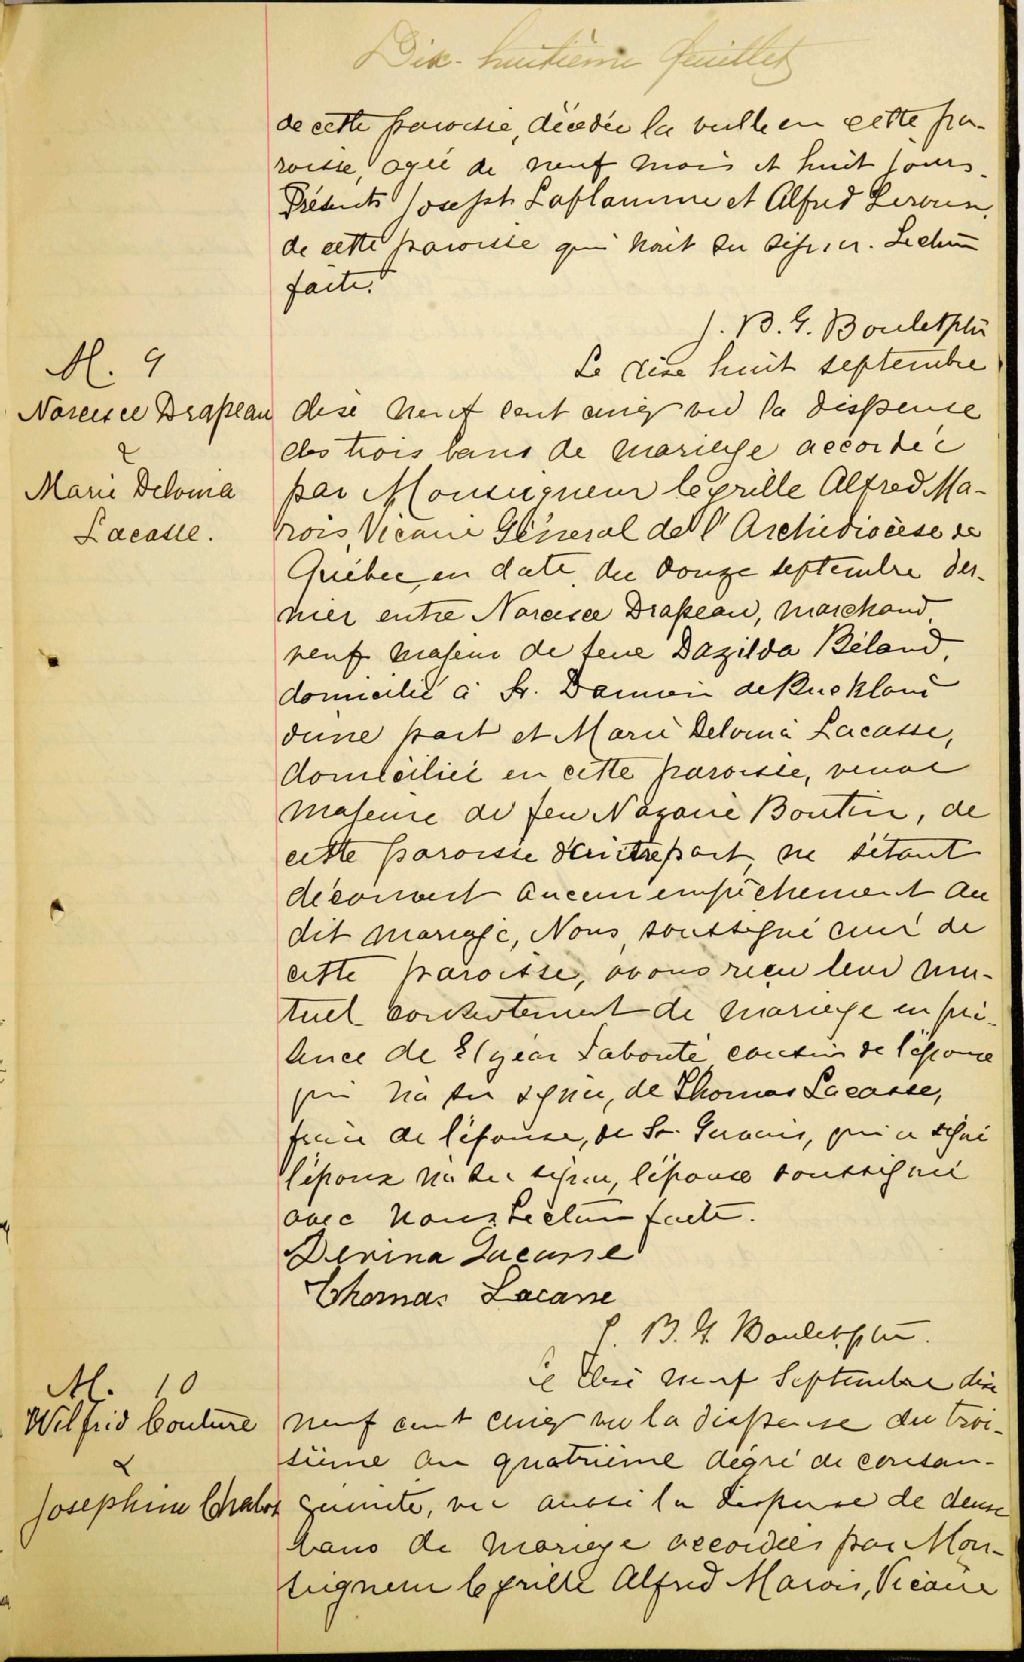 Dix-huitième feuillet
de cette paroisse, décédée la veille en cette pa-
roisse, agée de neuf mois et huit jours.
Présents Joseph Laflamme et Alfred
de cette paroisse qui n'ont su signer. Lecture
faite.
J. B. G. Boulet ptre
M. 9
Narcisse Drapeau
&
Marie Delvina
Lacasse.
Le dixe huit septembre
dixe neuf cent cinq vu la dispense
des trois bans de mariage accordée
par Monseigneur Cyrille Alfred Ma-
rois, Vicaire Général de l'Archidiocèse de
Québec, en date du douze septembre der-
nier entre Narcisse Drapeau, marchand,
veuf majeur de feue Dazilda Béland,
domicilié à St. Damien de Buckland
d'une part et Marie Delvina Lacasse,
domiciliée en cette paroisse, veuve
majeure de feu Nazaire Boutin, de
cette paroisse d'autre part, ne s'étant
découvert aucun empêchement au
dit mariage, Nous, soussigné curé de
cette paroisse, avons reçu leur mu-
tuel consentement de mariage en pré-
sence de Elzéar Labonté, cousin de l'épouse
qui n'a su signer, de Thomas Lacasse,
frère de l'épouse, de St. Gervais, qui a signé
l'époux n'a su signer, l'épouse soussigné
avec nous. Lecture faite.
Dervina Lacasse
Thomas Lacasse
J. B. G. Boulet, ptre.
M. 10
Wilfrid Couture
&
Josephine Chabot
Le dixe neuf Septembre dixe
neuf cent cinq vu la dispense du troi-
sième au quatrième dégré de consan-
guinité, vu aussi la dispense de deux
bans de mariage accordées par Mon-
seigneur Cyrille Alfred Marois, Vicaire